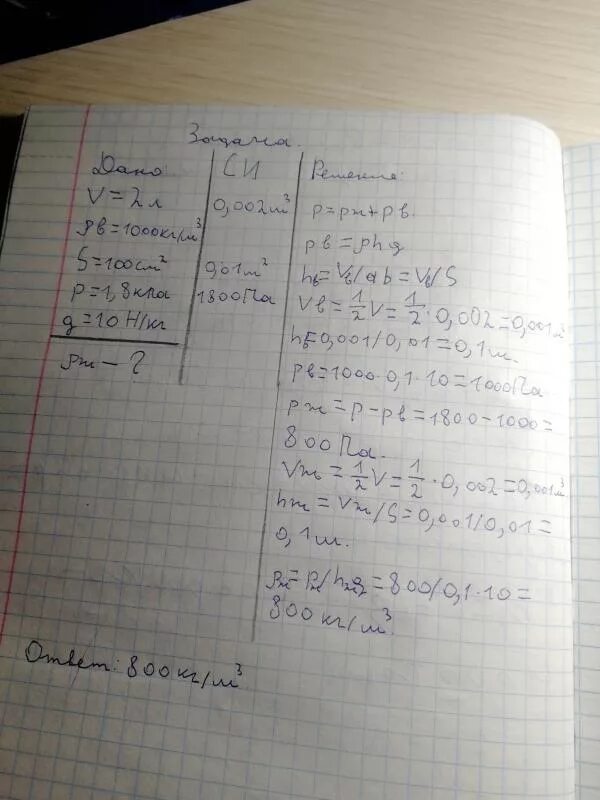 Задача.
Дано
V = 2 л
ρв = 1000 кг/м³
S = 100 см²
p = 1,8 кПа
g = 10 Н/кг
ρж – ?
СИ
0,002 м³
0,01 м²
1800 Па
Решение:
p = pж + pв
pв = ρhg
hв = Vв/ab = Vв/S
Vв = 1/2 V = 1/2 · 0,002 = 0,001 м³
hв = 0,001/0,01 = 0,1 м.
pв = 1000 · 0,1 · 10 = 1000 Па.
pж = p – pв = 1800 – 1000 =
800 Па.
Vж = 1/2 V = 1/2 · 0,002 = 0,001 м³
hж = Vж/S = 0,001/0,01 =
0,1 м.
ρж = pж/hжg = 800/0,1 · 10 =
800 кг/м³.
Ответ: 800 кг/м³